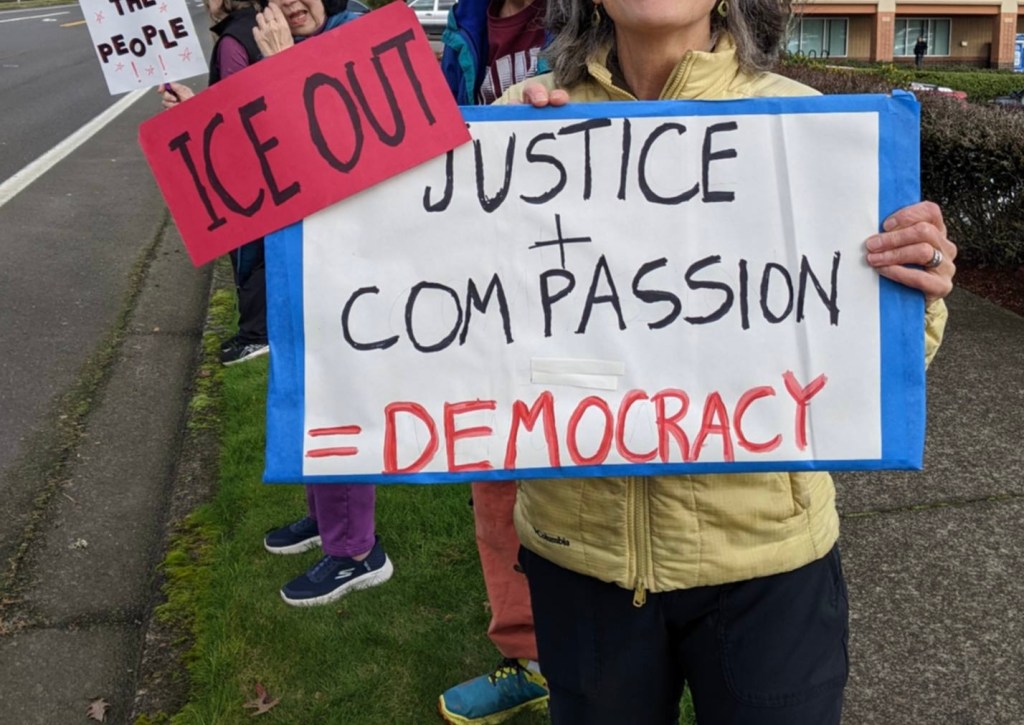 THE
PEOPLE
!!
ICE OUT
JUSTICE
+
COMPASSION
= DEMOCRACY
Columbia